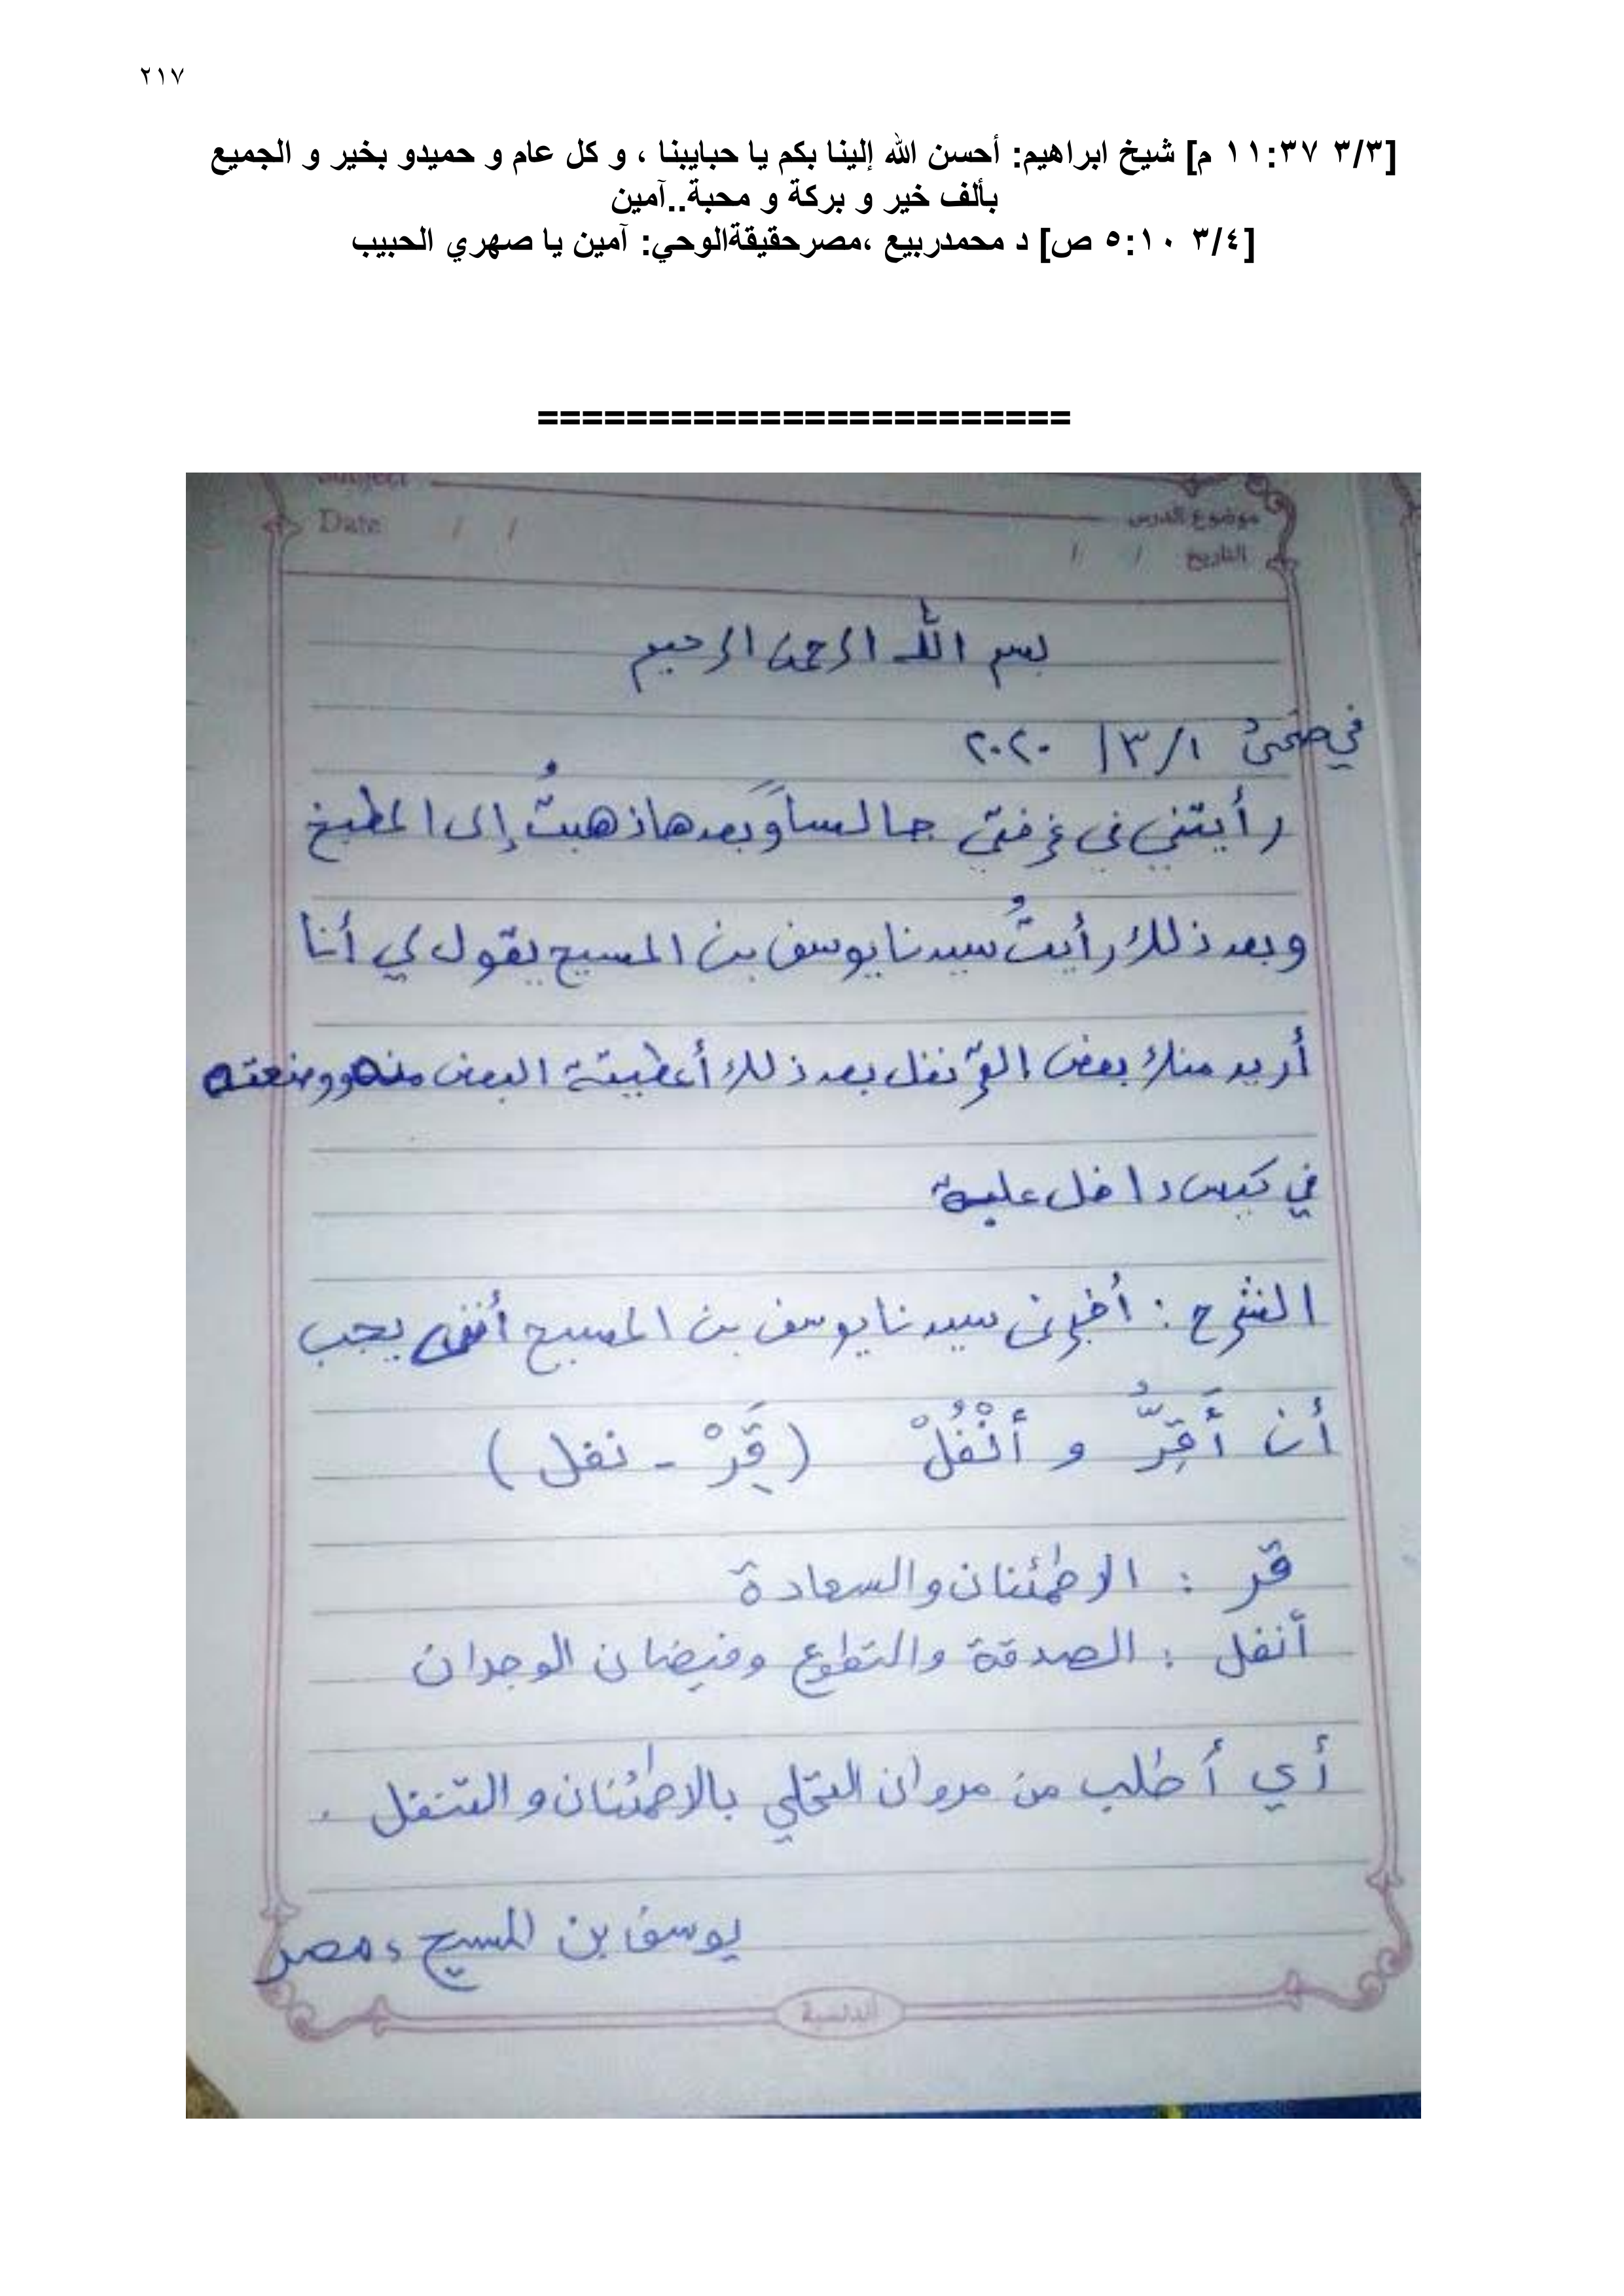 ٢١٧
[٣/٣ ١١:٣٧ م] شيخ ابراهيم: أحسن الله إلينا بكم يا حبايبنا ، و كل عام و حميدو بخير و الجميع
بألف خير و بركة و محبة..آمين
[٣/٤ ٥:١٠ ص] د محمدربيع ،مصرحقيقةالوحي: آمين يا صهري الحبيب
========================
Subject
موضوع الدرس
Date / /
التاريخ / /
بسم الله الرحمن الرحيم
في ضحى ١/٣/ ٢٠٢٠
رأيتني في غرفتي جالساً وبعدها ذهبتُ إلى المطبخ
وبعد ذلك رأيتُ سيدنا يوسف بن المسيح يقول لي أنا
أريد منك بعض القرنفل بعد ذلك أعطيتة البعض منه ووضعته
في كيس داخل علبة
الشرح : أخبرني سيدنا يوسف بن المسيح أنني يجب
أن أَقِرُّ و أَنْفُلْ (قَِرْ - نفل)
قر : الاطمئنان والسعادة
أنفل : الصدقة والتطوع وفيضان الوجدان
أي أطلب من مروان التحلي بالاطمئنان و التنفل .
يوسف بن المسيح ، مصر